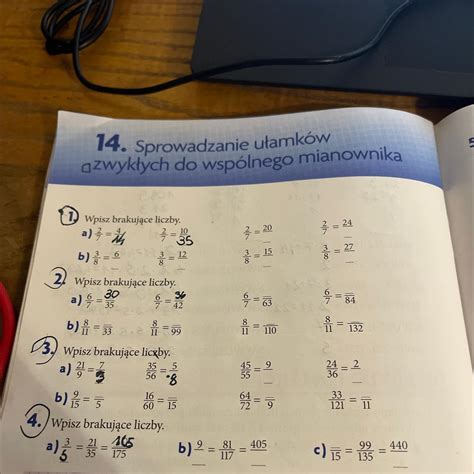 14. Sprowadzanie ułamków
zwykłych do wspólnego mianownika
1. Wpisz brakujące liczby.
a) 2/7 = 4/14 2/7 = 10/35 2/7 = 20/_ 2/7 = 24/_
b) 3/8 = 6/_ 3/8 = 12/_ 3/8 = 15/_ 3/8 = 27/_
2. Wpisz brakujące liczby.
a) 6/7 = 30/35 6/7 = 36/42 6/7 = _/63 6/7 = _/84
b) 8/11 = _/33 8/11 = _/99 8/11 = _/110 8/11 = _/132
3. Wpisz brakujące liczby.
a) 21/9 = 7/3 35/56 = 5/8 45/55 = 9/_ 24/36 = 2/_
b) 9/15 = _/5 16/60 = _/15 64/72 = _/9 33/121 = _/11
4. Wpisz brakujące liczby.
a) 3/5 = 21/35 = 105/175 b) 9/_ = 81/117 = 405/_ c) _/15 = 99/135 = 440/_